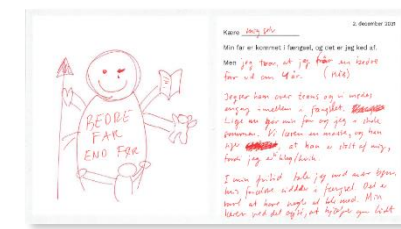 BEDRE
FAR
END FØR
2. december 2021
Kære mig selv
Min far er kommet i fængsel, og det er jeg ked af.
Men jeg tror, at jeg får en bedre
far ud om 4 år.
Jeg ser ham over trans og vi mødes
engang imellem i fængslet.
Lige nu går min far og jeg i skole
sammen. Vi lærer en masse, og han
siger, at han er stolt af mig,
fordi jeg er
I min fritid taler jeg med andre børn,
hvis forældre sidder i fængsel. Det er
rart at have nogle at
lærer ved det også, at hjælper